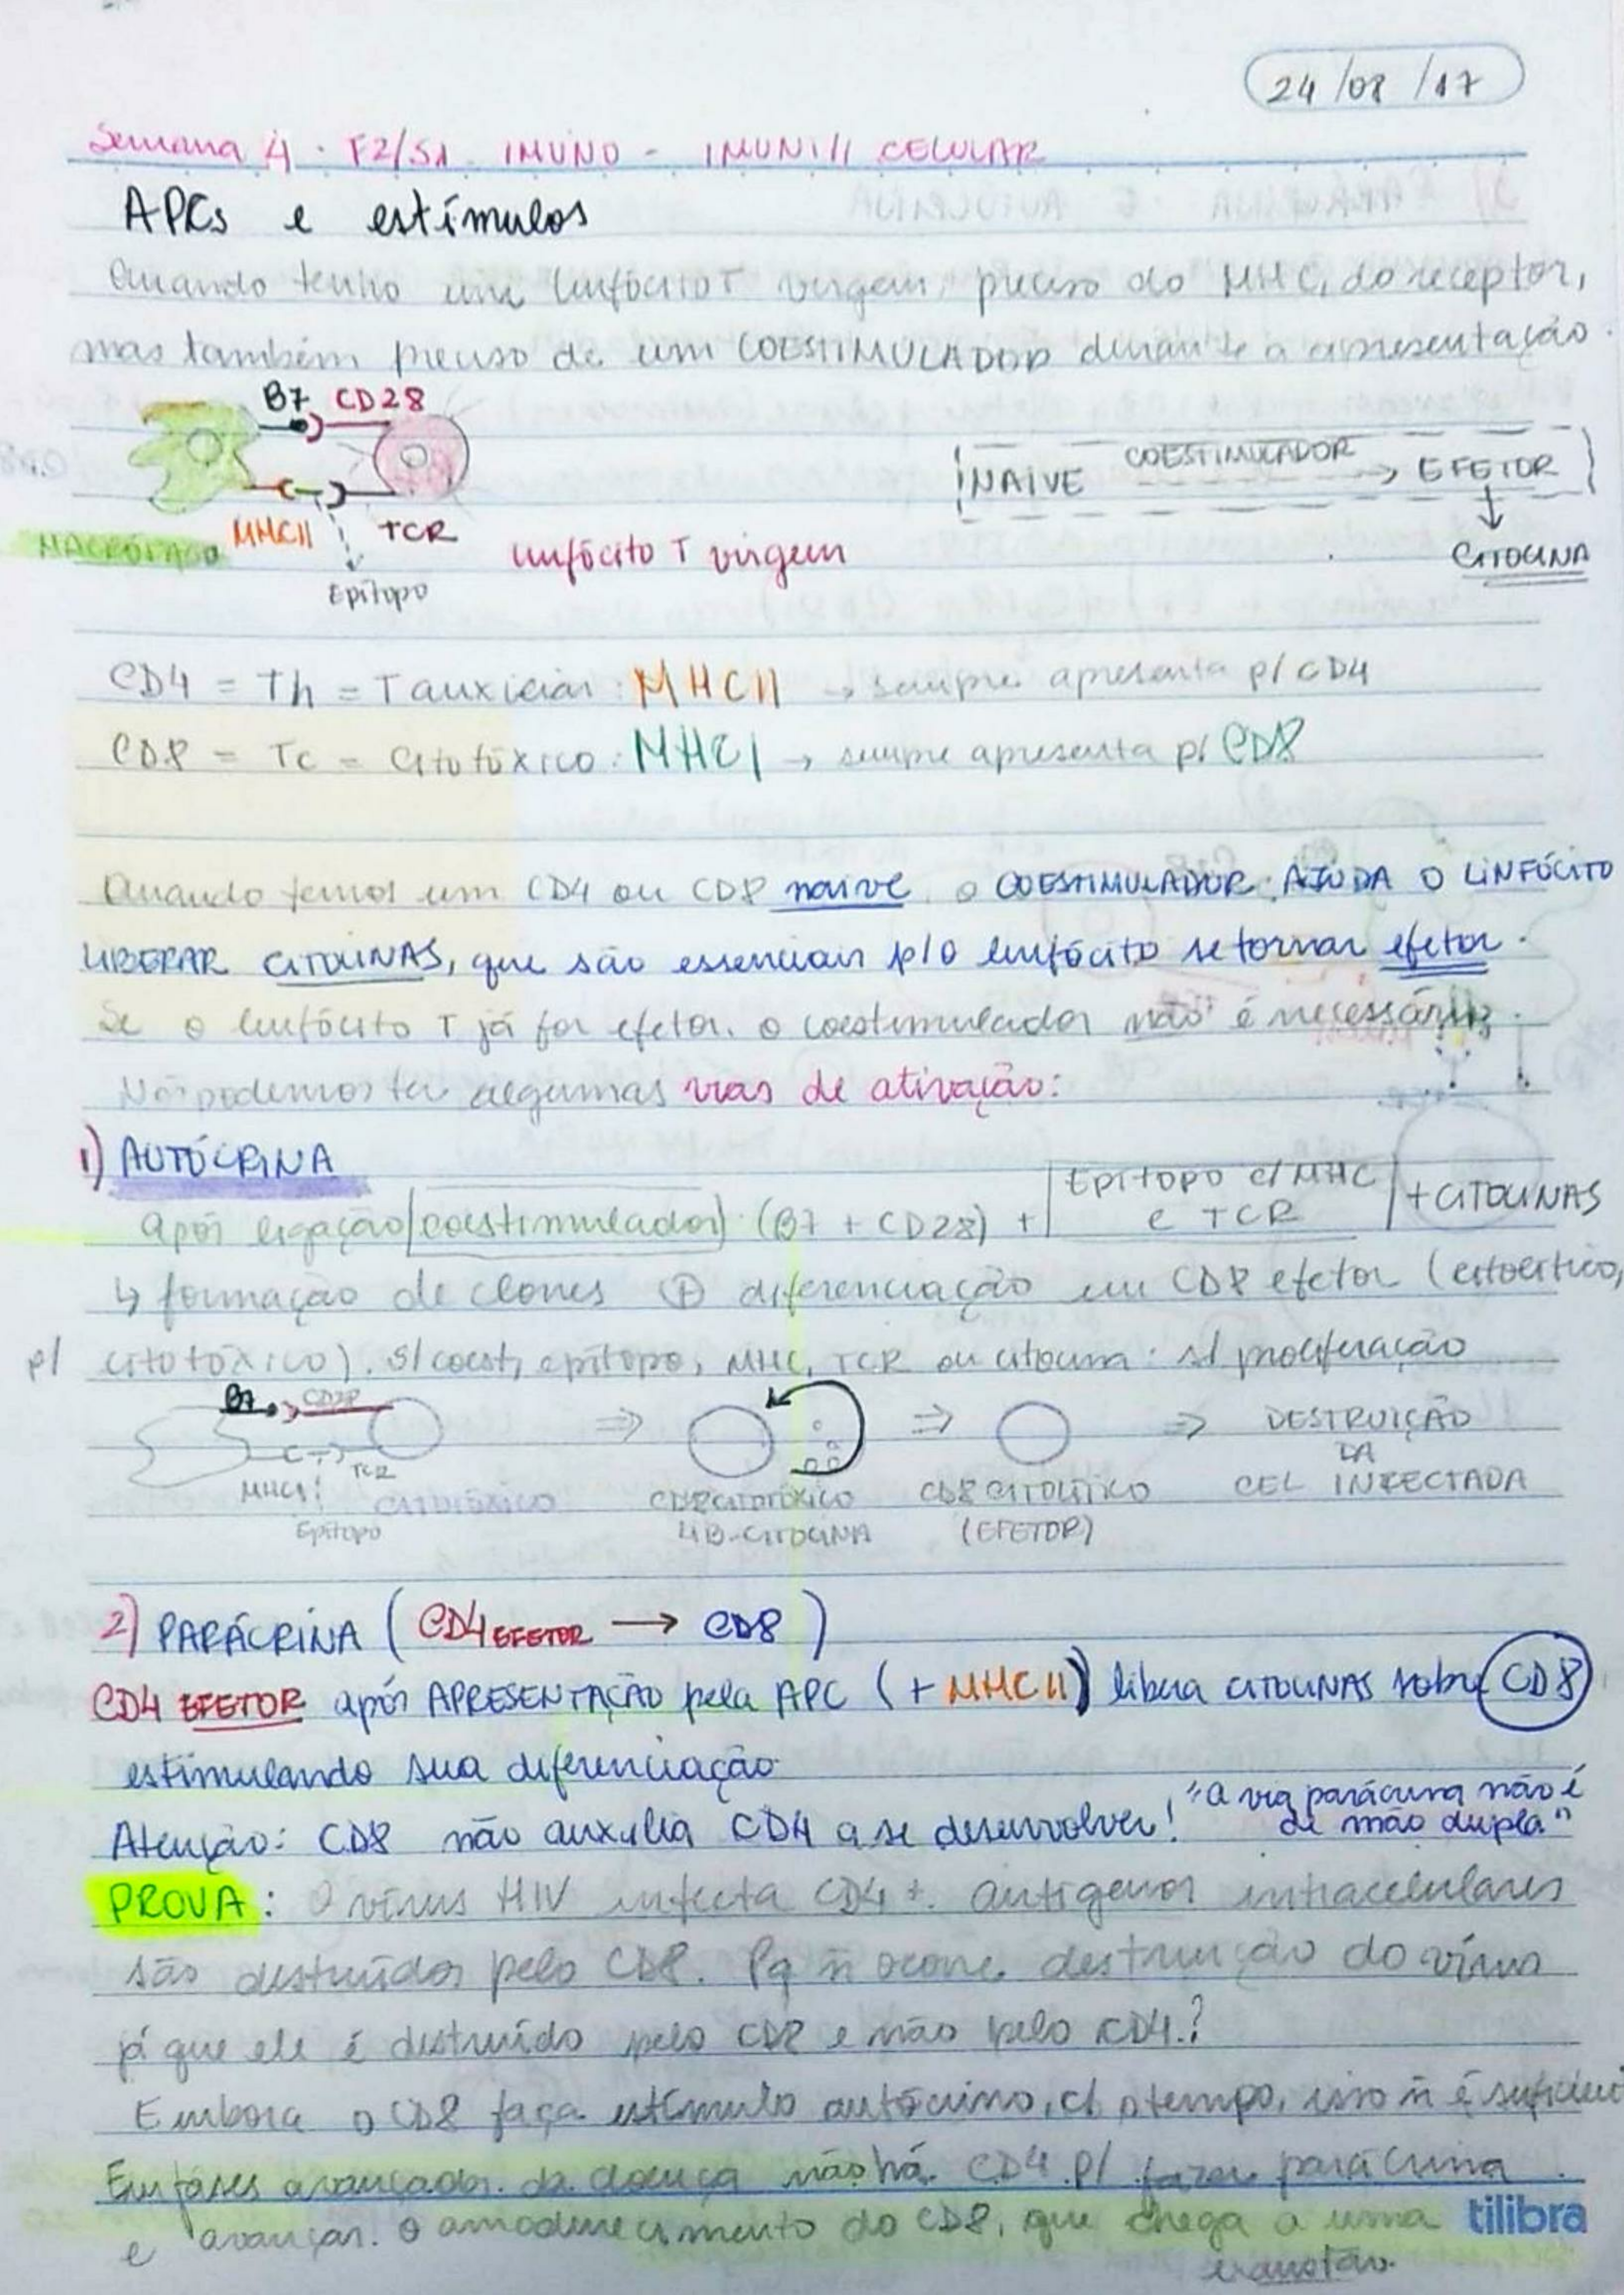 24/08/17
Semana 4 · F2/S1 - IMUNO - IMUNI// CELULAR
APCs e estímulos
Quando tenho um linfócito T virgem, preciso do MHC, do receptor,
mas também preciso de um COESTIMULADOR durante a apresentação.
B7 CD28
MHCII TCR
MACRÓFAGO
Epítopo
linfócito T virgem
NAIVE COESTIMULADOR → EFETOR
↓
CITOCINA
CD4 = Th = T auxiliar: MHCII → sempre apresenta p/ CD4
CD8 = Tc = Citotóxico: MHCI → sempre apresenta p/ CD8
Quando temos um CD4 ou CD8 naive o COESTIMULADOR AJUDA O LINFÓCITO
LIBERAR CITOCINAS, que são essenciais p/ o linfócito se tornar efetor.
Se o linfócito T já for efetor, o coestimulador não é necessário.
Nós podemos ter algumas vias de ativação:
1) AUTÓCRINA
Após ligação coestimulador (B7 + CD28) + Epítopo c/ MHC e TCR + CITOCINAS
↳ formação de clones ⊕ diferenciação em CD8 efetor (
p/ citotóxico). S/ coest, epítopo, MHC, TCR ou citocina: s/ proliferação
B7 CD28
MHCI TCR
Epítopo
CITOTÓXICO
⇒ CD8 CITOTÓXICO
LIB. CITOCINA
⇒ CD8 CITOLÍTICO
(EFETOR)
⇒ DESTRUIÇÃO
DA
CEL INFECTADA
2) PARÁCRINA (CD4 EFETOR → CD8)
CD4 EFETOR após APRESENTAÇÃO pela APC (+ MHCII) libera CITOCINAS sobre CD8
estimulando sua diferenciação
Atenção: CD8 não auxilia CD4 a se desenvolver! "A via parácrina não é
de mão dupla"
PROVA: O vírus HIV infecta CD4+. Antígenos intracelulares
são destruídos pelo CD8. Pq ñ ocorre destruição do vírus
já que ele é destruído pelo CD8 e não pelo CD4?
Embora o CD8 faça estímulo autócrino, c/ o tempo, isso ñ é suficiente
Em fases avançadas da doença não há CD4 p/ fazer parácrina
e avançar o amadurecimento do CD8, que chega a uma
exaustão.
tilibra